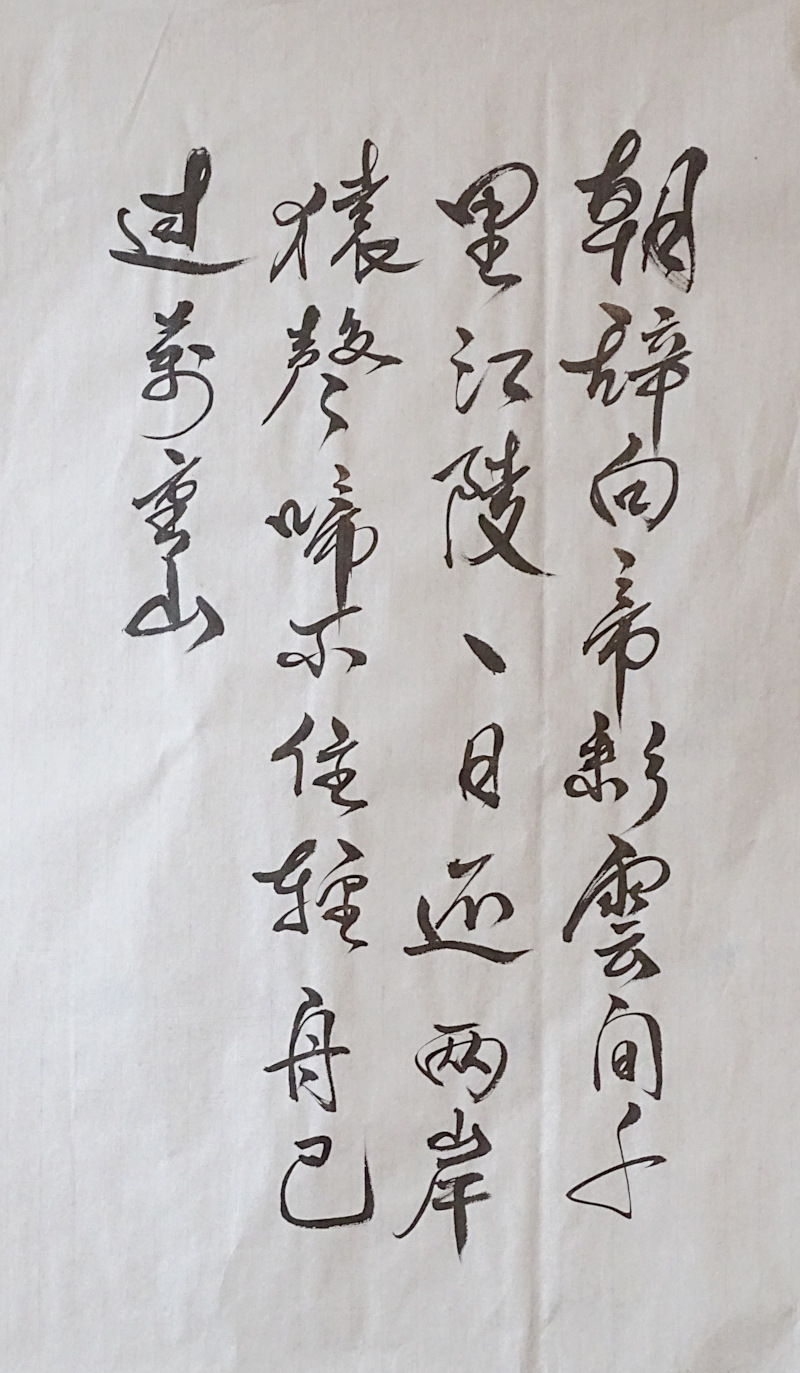 朝辞白帝彩雲间千
里江陵一日还两岸
猿聲啼不住輕舟已
过萬重山